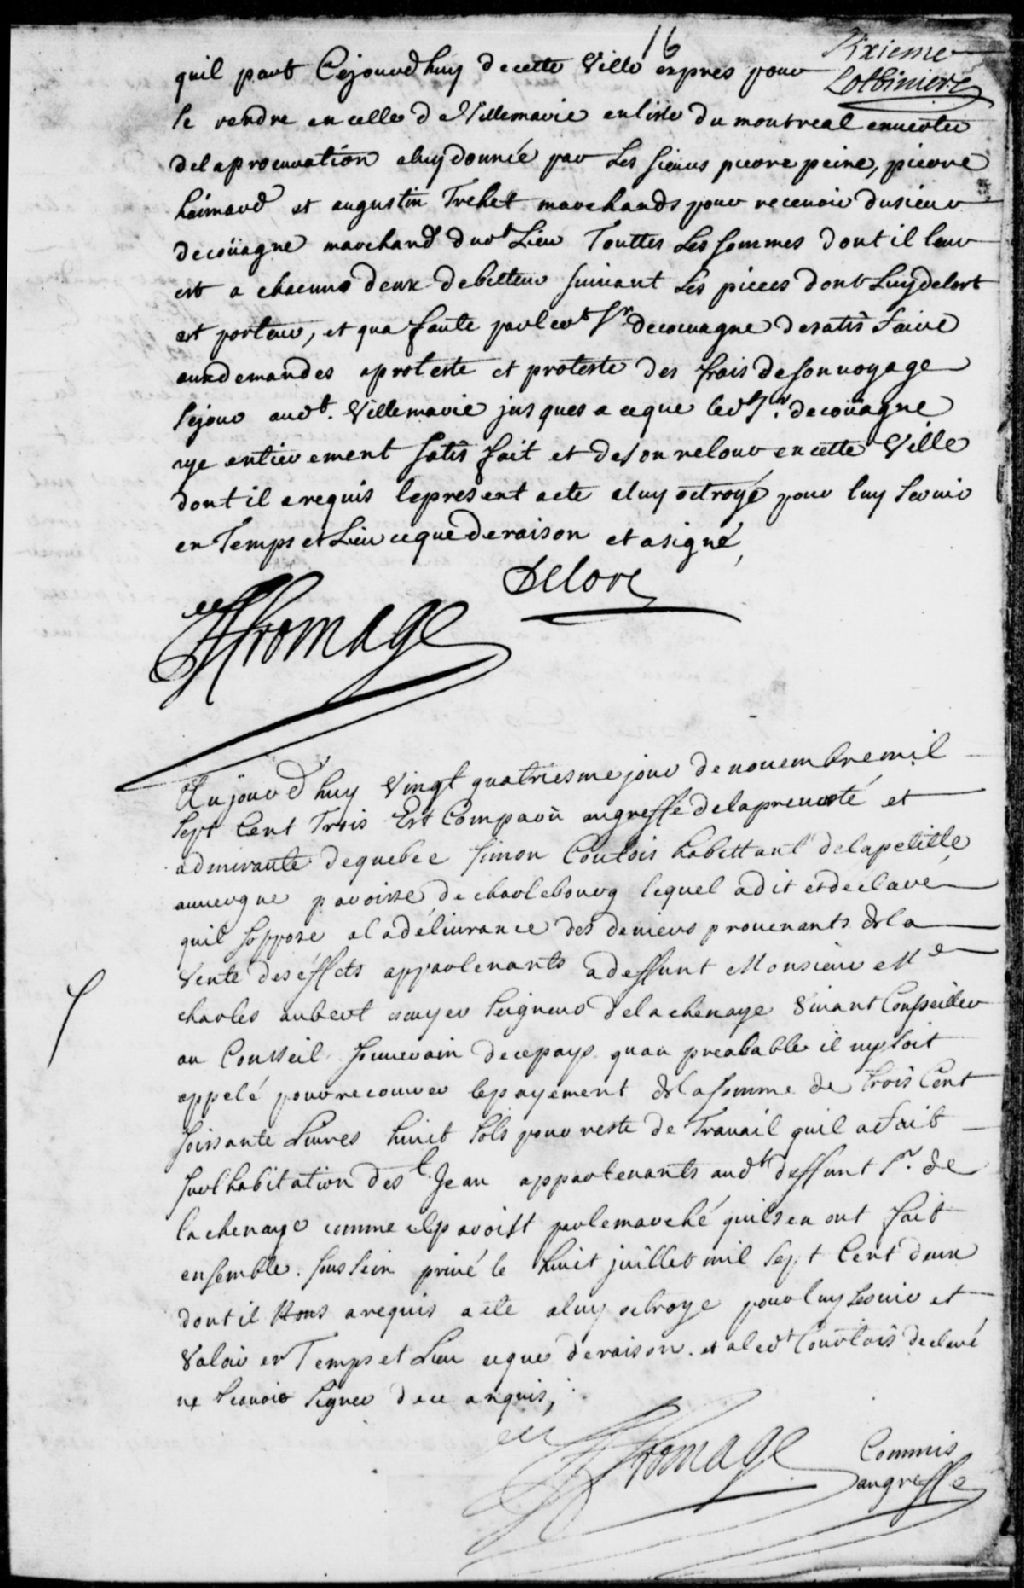 16
Sixieme
Lotbiniere
quil part Cejourdhuy decette Ville expres pour
se rendre en celle de Villemarie en lisle du montreal envertu
delaprocuration aluy donnée par Les sieurs pierre peire, pierre
heimard et augustin Trehet marchands pour recevoir dusieur
decoüagne marchand dudt Lieu Touttes Les sommes dont il leur
est a chacuns deux debitteur suivant Les pieces dont Luy delort
est porteur, et qua faute par ledt Sr decouagne desatisfaire
auxdemandes aproteste et proteste des frais deson voyage
sejour audt. Villemarie jusques aceque ledt Sr. decoüagne
aye entierement satisfait et deson retour en cette Ville
dont il a requis lepresent acte aluy octroyé pour luy servir
en Temps et Lieu ceque deraison et a signé,
Delort
Fromage
Aujourdhuy Vingt quatriesme jour de novembre mil
sept Cent Trois Est Comparu augreffe delaprevosté et
admirauté dequebec simon Coutois habittant delapetitte
auvergne paroisse de charlebourg lequel adit et declaré
quil soppose aladélivrance des deniers provenants dela
Vente deséffets appartenants adeffunt Monsieur Me
charles aubert escuyer seigneur delachenaye Vivant Conseiller
au Conseil souverain decepays. quau preabable il nysoit
appelé pour recouvrer lepayement delasomme de Trois Cent
soissante Livres huict sols pour reste de Travail quil afait
surlhabitation de St Jean appartenants audt deffunt Sr. de
lachenaye comme ilparoist parlemarché quilsen ont fait
ensemble. sous sein privé le huit juillet mil sept Cent deux
dont il Nous a requis acte aluy octroye pour luy servir et
Valoir en Temps et Lieu ceque deraison. et aledt Courtois declaré
ne scavoir signer dece anquis,
Fromage
Commis
augreffe